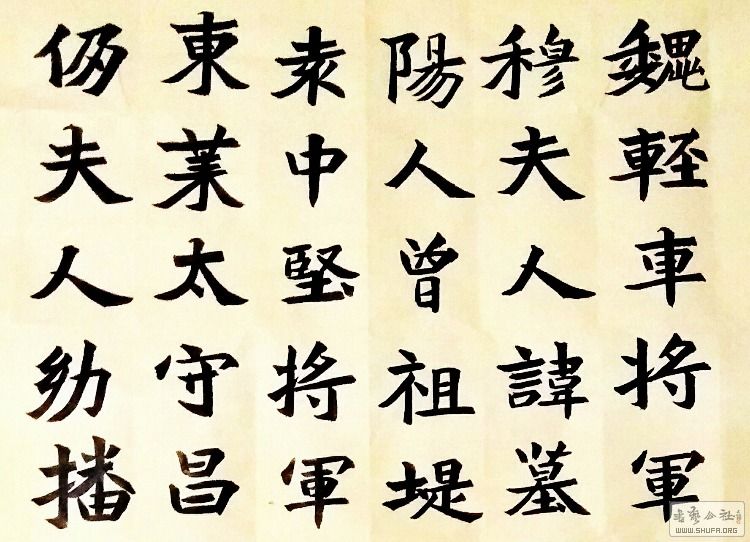 魏輕車将軍
穆夫人諱墓
陽人曾祖堤
袁中堅将軍
東萊太守昌
夫人幼播
书艺公社
WWW.SHUFA.ORG